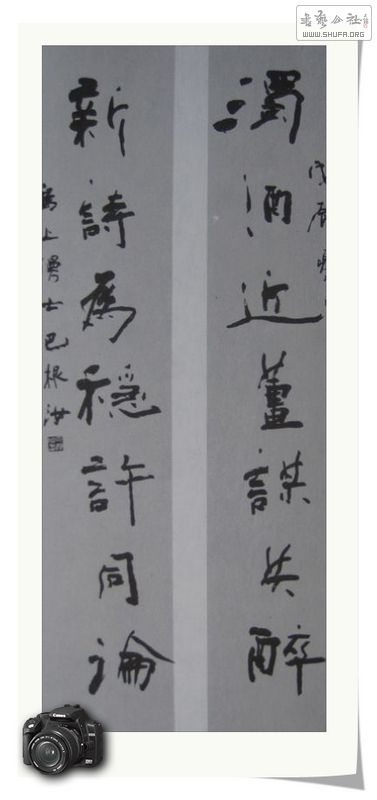 書藝公社
WWW.SHUFA.ORG
戊辰
濁酒近薑謀共醉
新詩爲穩許同論
上勇士巴根汝
Canon